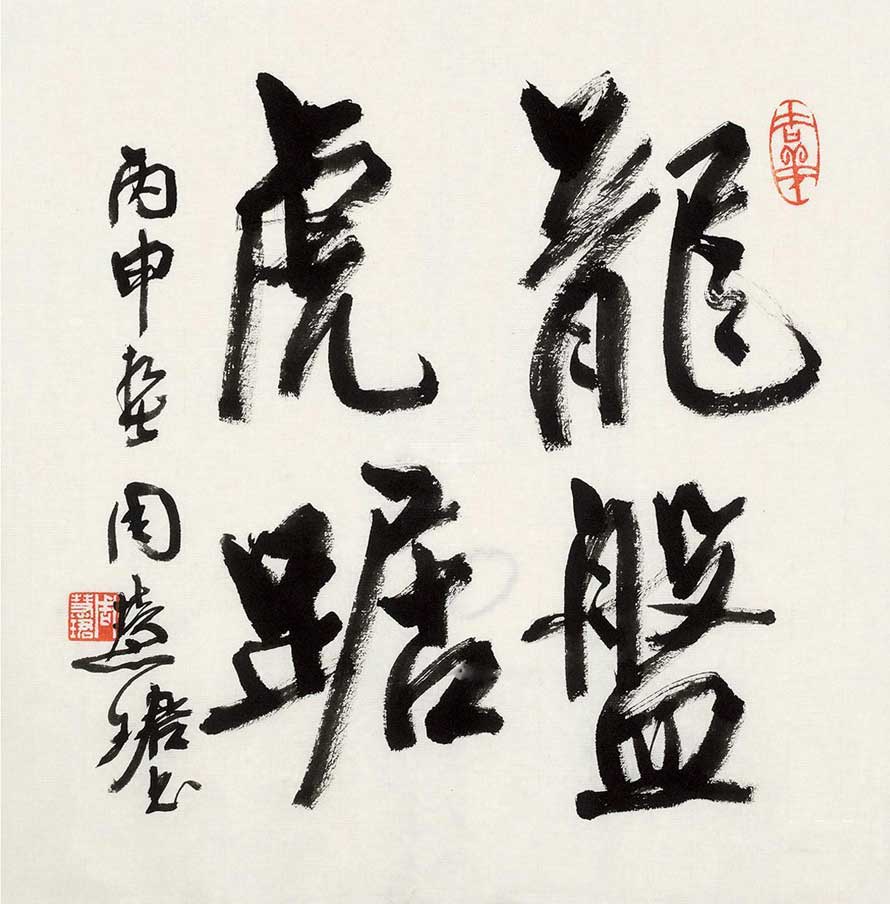 龍盤
虎踞
丙申 周慧珺书
周慧珺